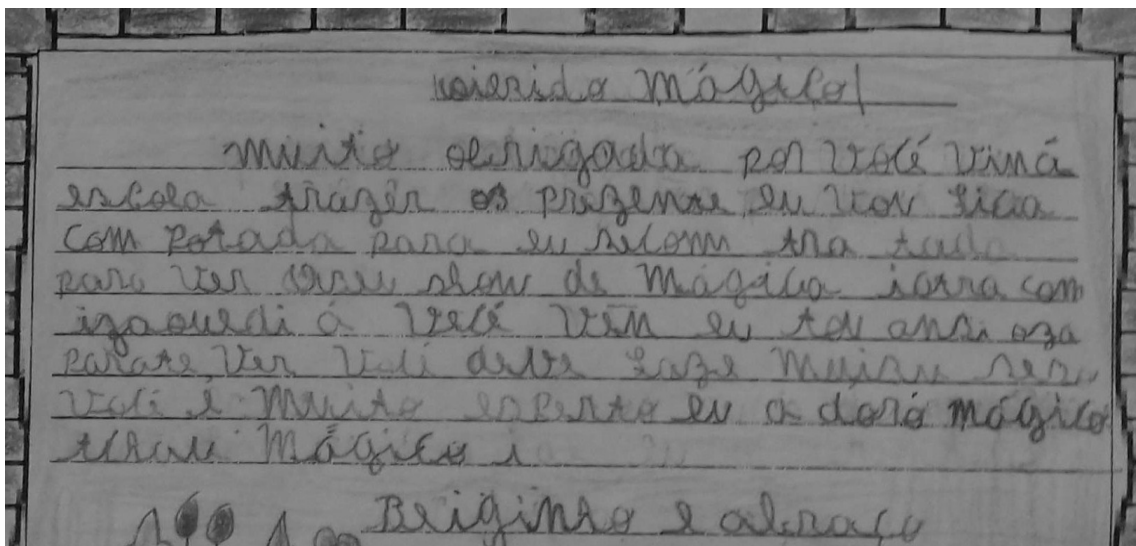 coierido mágico!
muito obrigada por você vim á
escola trazer os prezente eu vou fica
com potada para eu
para ver seu show de mágica
você vem eu tou ansi oza
parate ver você deve faze
você é muito esperto eu a doro mágico
tchau mágico
Beiginho e abraço